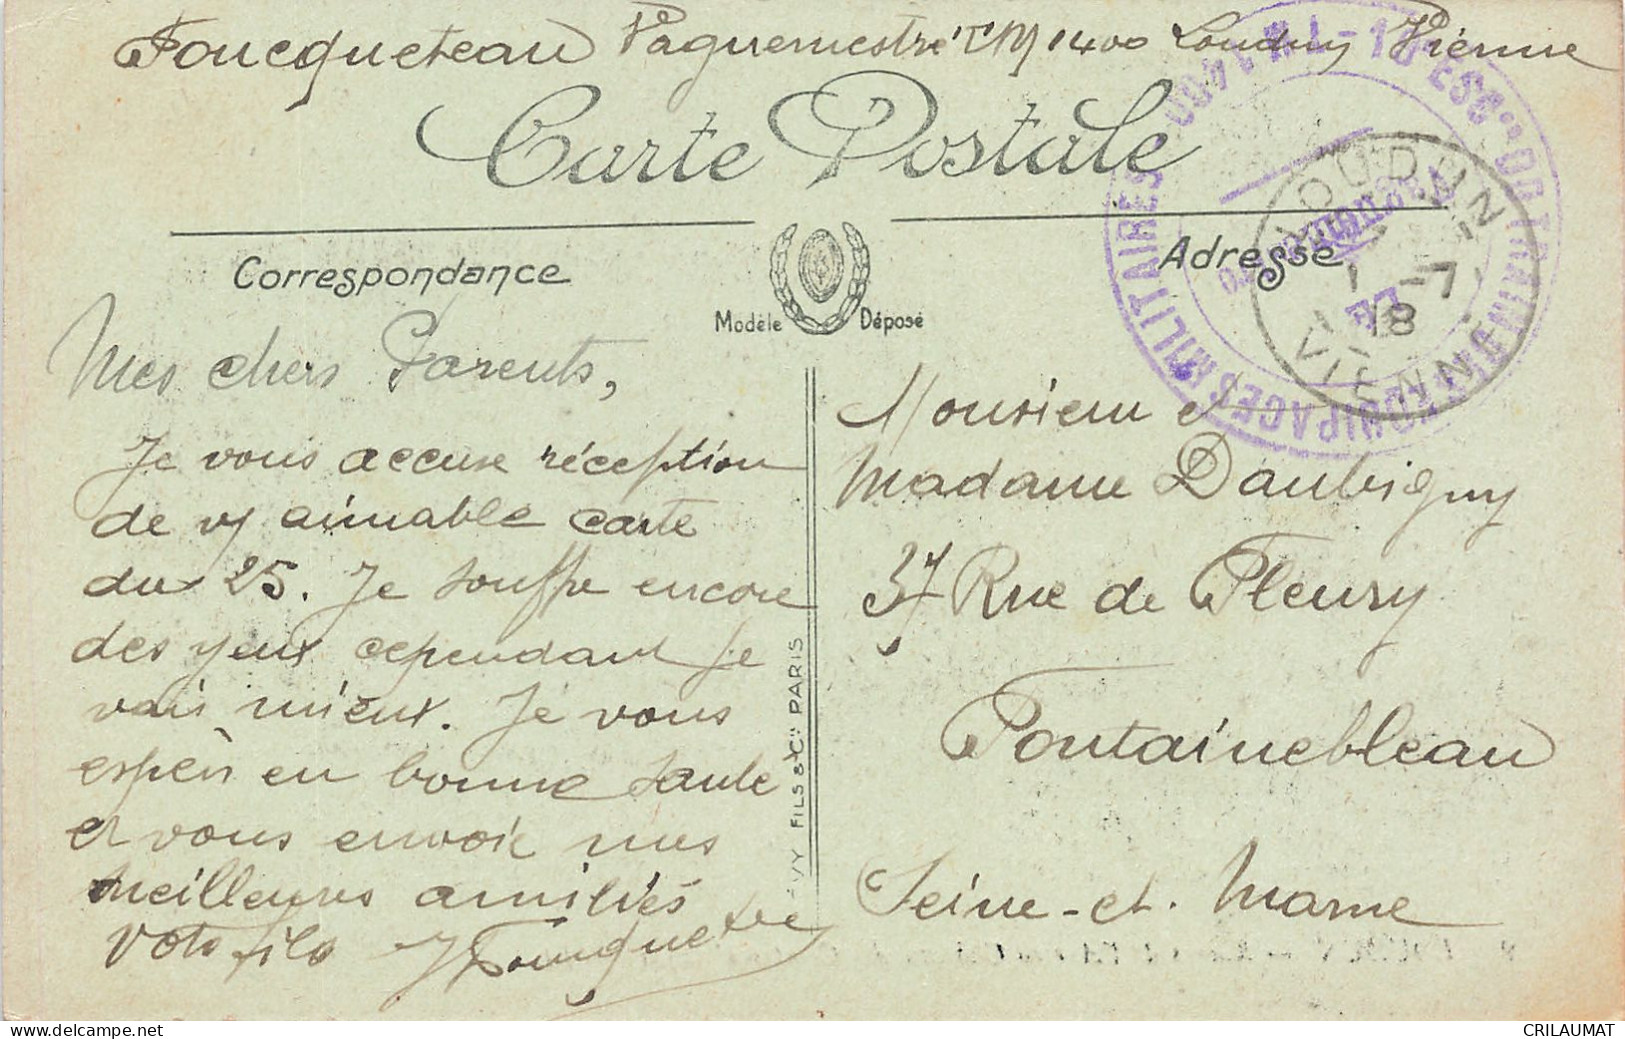 Foucqueteau Vaguemestre TM 1400 Loudun Vienne
Carte Postale
Correspondance
Adresse
Modèle Déposé
LOUDUN
1 -7
18
VIENNE
ÉQUIPAGES MILITAIRES
DU TRAIN
Mes chers Parents,
Je vous accuse réception
de vy aimable carte
du 25. Je souffre encore
des yeux cependant je
vais mieux. Je vous
espère en bonne sante
et vous envoie mes
meilleures amitiés
Votre fils
Monsieur et
Madame Daubigny
37 Rue de Fleury
Fontainebleau
Seine-et-Marne
FILS & Cie PARIS
delcampe.net
CRILAUMAT